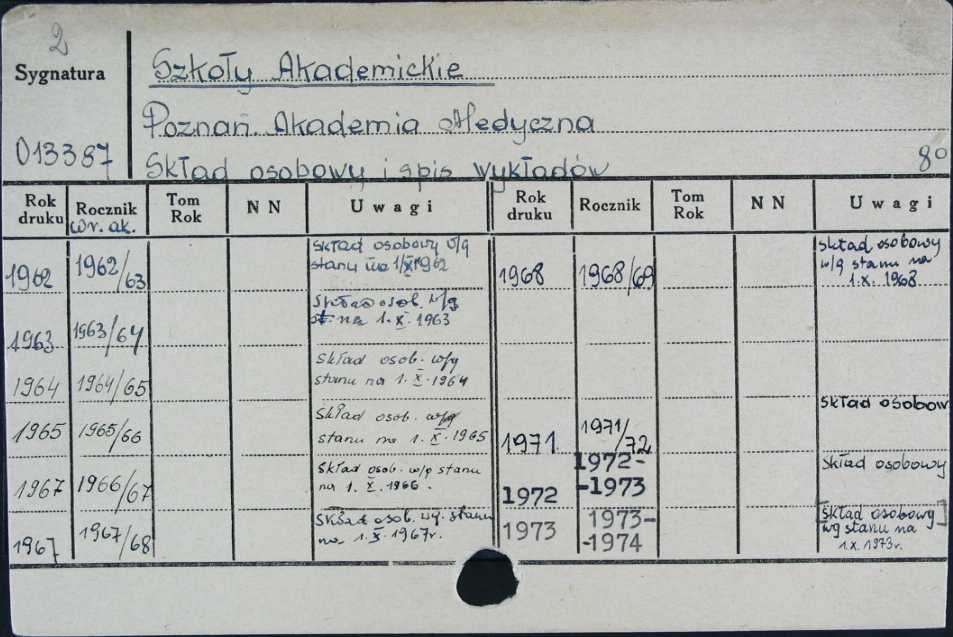 2
Sygnatura
Szkoły Akademickie
Poznań. Akademia Medyczna
013387
Skład osobowy i spis wykładów 8°
Rok druku Rocznik wr. ak. Tom Rok N N Uwagi Rok druku Rocznik Tom Rok N N Uwagi
1962 1962/63 Skład osobowy w/g
stanu na 1/X 1962
1963 1963/64 Skład osob. w/g
st. na 1.X.1963
1964 1964/65 Skład osob. w/g
stanu na 1.X.1964
1965 1965/66 Skład osob. w/g
stanu na 1.X.1965
1967 1966/67 Skład osob. w/g stanu
na 1.X.1966.
1967 1967/68 Skład osob. wg. stanu
na 1.X.1967r.
1968 1968/69 Skład osobowy
w/g stanu na
1.X.1968
1971 1971/72 Skład osobow
1972 1972-
-1973 Skład osobowy
1973 1973-
-1974 [Skład osobowy]
wg stanu na
1.X.1973r.